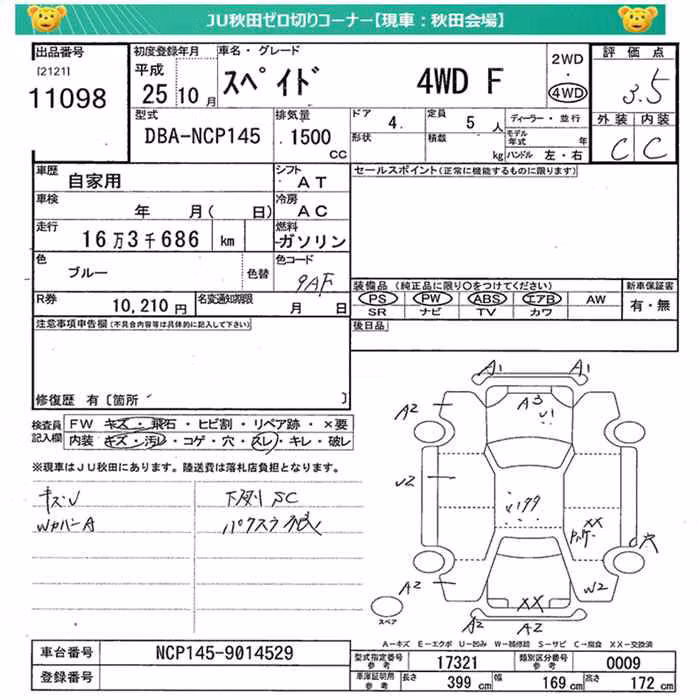 JU秋田ゼロ切りコーナー【現車：秋田会場】
出品番号
[2121]
11098
初度登録年月
平成
25年10月
車名・グレード
スペイド 4WD F
2WD
・
4WD
評価点
3.5
外装 内装
C C
型式
DBA-NCP145
排気量
1500
CC
ドア 4
定員 5 人
形状
積載 kg
ディーラー・並行
モデル年式 年
ハンドル 左・右
車歴 自家用
シフト AT
車検 年 月( 日)
冷房 AC
走行 16万3千686 km
燃料 ガソリン
色 ブルー 色替
色コード 9AF
R券 10,210円
名変通知期限 月 日
セールスポイント(正常に機能するものに限ります)
装備品 (純正品に限り○をつけてください)
PS PW ABS エアB AW
SR ナビ TV カワ
新車保証書
有・無
後日品
注意事項申告欄(不具合内容等は具体的に記入して下さい)
修復歴 有［箇所 ］
検査員記入欄
FW キズ・飛石・ヒビ割・リペア跡・×要
内装 キズ・汚レ・コゲ・穴・スレ・キレ・破レ
※現車はJU秋田にあります。陸送費は落札店負担となります。
キズU 下廻り SC
WカバーA
A1 A1
A3
U1
A2
U2
XX
穴
A2
W2
XX
A2 A2
スペア
A＝キズ E＝エクボ U＝凹み W＝補修跡 S＝サビ C＝腐食 XX＝交換済
車台番号 NCP145-9014529
登録番号
型式指定番号参考 17321
類別区分番号参考 0009
車庫証明用参考 長さ 399 cm 幅 169 cm 高さ 172 cm